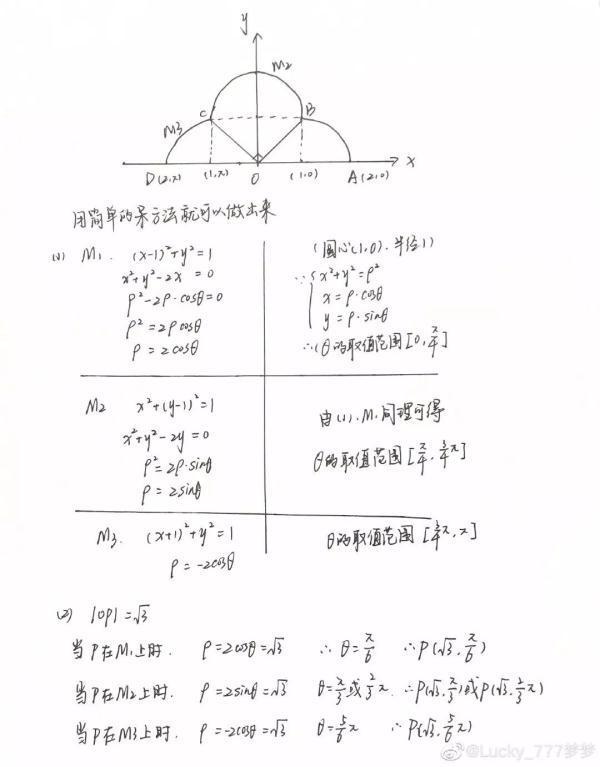 y
M2
C
B
M3
D(2,π)
(1,π)
O
(1,0)
A(2,0)
x
用简单的呆方法就可以做出来
(1) M1. (x-1)²+y²=1
x²+y²-2x=0
ρ²-2ρ·cosθ=0
ρ²=2ρcosθ
ρ=2cosθ
(圆心(1,0).半径1)
∵{x²+y²=ρ²
x=ρ·cosθ
y=ρ·sinθ
∴(θ的取值范围[0,π/4]
M2 x²+(y-1)²=1
x²+y²-2y=0
ρ²=2ρ·sinθ
ρ=2sinθ
由(1).M1同理可得
θ的取值范围[π/4,3/4π]
M3. (x+1)²+y²=1
ρ=-2cosθ
θ的取值范围[3/4π,π]
(2) |OP|=√3
当P在M1上时. ρ=2cosθ=√3 ∴θ=π/6 ∴P(√3,π/6)
当P在M2上时. ρ=2sinθ=√3 θ=π/3或2/3π ∴P(√3,π/3)或P(√3,2/3π)
当P在M3上时. ρ=-2cosθ=√3 θ=5/6π ∴P(√3,5/6π)
@Lucky_777梦梦